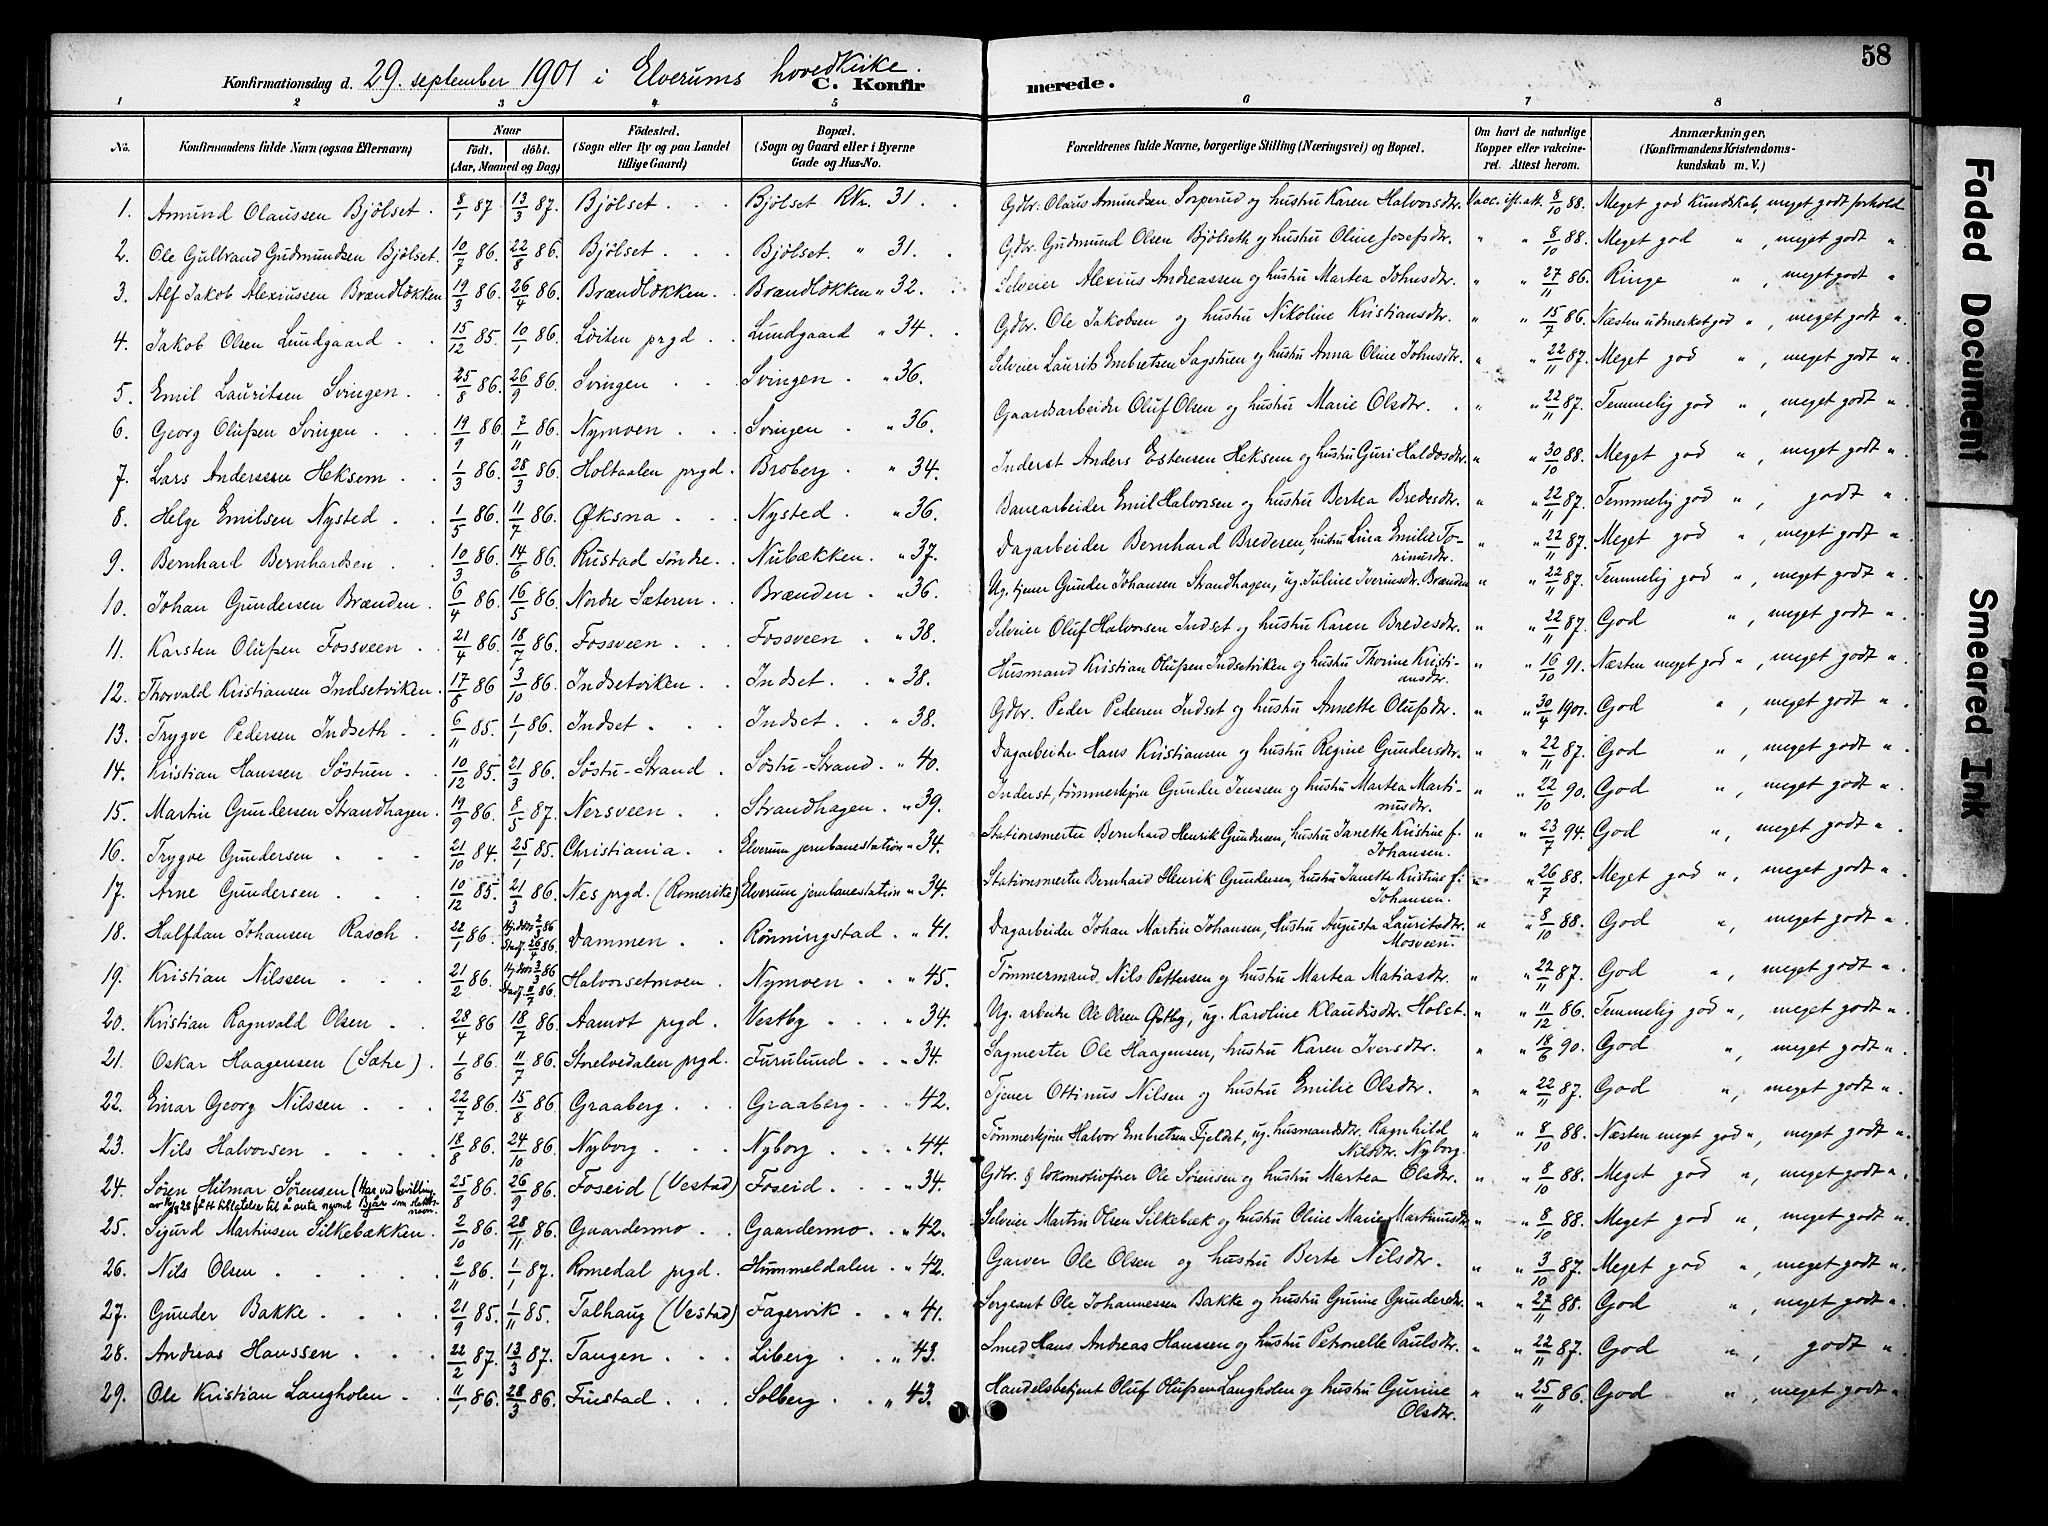 58
Konfirmationsdag d. 29. september 1901 i Elverums hovedkirke.
C. Konfirmerede.
1 2 3 4 5 6 7 8
No. Konfirmandens fulde Navn (ogsaa Efternavn) Naar födt, döbt. (Aar, Maaned og Dag) Födested. (Sogn eller By og paa Landet tillige Gaard) Bopæl. (Sogn og Gaard eller i Byerne Gade og Hus-No. Forældrenes fulde Navne, borgerlige Stilling (Næringsvei) og Bopæl. Om havt de naturlige Kopper eller vakcineret. Attest herom. Anmærkninger, (Konfirmandens Kristendomskundskab m. V.)
1. Amund Olaussen Bjölset. 8/1 87 13/3 87. Bjölset. Bjölset Rkr. 31. Gdbr. Olaus Amundsen Sorperud og hustru Karen Halvorsdtr. Vacc. ifl. att. 8/10 88. Meget god Kundskab, meget godt forhold
2. Ole Gulbrand Gudmundsen Bjölset. 10/7 86. 22/8 86. Bjölset. Bjölset. " 31. Gdbr. Gudmund Olsen Bjölseth og hustru Oline Josefsdtr. " " 8/10 88. Meget god " , meget godt "
3. Alf Jakob Alexiussen Brændlökken 19/3 86. 26/4 86. Brændlökken. Brændlökken " 32. Selveier Alexius Andreassen og hustru Martea Johnsdtr. " " 27/11 86. Ringe " , meget godt "
4. Jakob Olsen Lundgaard 15/12 85. 10/1 86. Löiten prgd Lundgaard " 34. Gdbr. Ole Jakobsen og hustru Nikoline Kristiansdtr. " " 15/7 86. Næsten udmerket god " , meget godt ".
5. Emil Lauritsen Svingen. 25/8 86. 26/9 86. Svingen Svingen " 36. Selveier Laurits Embretsen Sagstuen og hustru Anna Oline Johnsdtr. " " 22/11 87. Meget god " , meget godt ".
6. Georg Olufsen Svingen 19/9 86 7/11 86. Nymoen Svingen " 36. Gaardsarbeider Oluf Olsen og hustru Marie Olsdtr. " " 22/11 87. Temmelig god " , meget godt ".
7. Lars Anderssen Heksem 1/3 86. 28/3 86. Holtaalen prgd. Broberg " 34. Inderst Anders Estensen Heksem og hustru Guri Haldosdtr. " " 30/10 88. Meget god " , meget godt ".
8. Helge Emilsen Nysted 1/5 86. 11/7 86. Öksna Nysted " 36. Banearbeider Emil Halvorsen og hustru Bertea Bredesdtr. " " 22/11 87. Temmelig god " , godt ".
9. Bernhard Bernhardsen 10/3 86. 14/6 86. Rustad söndre. Nubækken. " 37. Dagarbeider Bernhard Bredesen, hustru Lina Emilie Torinusdtr. " " 22/11 87. Meget god " , meget godt ".
10. Johan Gundersen Brænden. 6/4 86. 16/5 86. Nordre Sæteren. Brænden " 36. Ug. tjener Gunder Johansen Strandhagen, ug. Juline Iverinsdtr. Brænden " " 22/11 87. Temmelig god " , meget godt ".
11. Karsten Olufsen Fossveen 21/4 86. 18/7 86. Fossveen. Fossveen " 38. Selveier Oluf Halvorsen Indset og hustru Karen Bredesdtr. " " 22/11 87. God " , meget godt ".
12. Thorvald Kristiansen Indsetviken. 17/6 86 3/10 86. Indsetviken Indset. " 38. Husmand Kristian Olufsen Indsetviken og hustru Thorine Kristiansdtr. " " 16/10 91. Næsten meget god " , meget godt ".
13. Trygve Pedersen Indseth 6/11 85. 1/1 86. Indset Indset. " 38. Gdbr. Peder Pedersen Indset og hustru Annette Olufsdtr. " " 30/4 1901. God " , meget godt ".
14. Kristian Hanssen Söstuen 10/12 85. 21/3 86. Söstu-Strand Söstu-Strand " 40. Dagarbeider Hans Kristiansen og hustru Regine Gundersdtr. " " 22/11 87. God " , meget godt ".
15. Martin Gundersen Strandhagen. 19/9 86. 8/5 87. Nersveen Strandhagen. " 39. Inderst, tömmerkjörer Gunder Jenssen og hustru Martea Martinusdtr. " " 22/10 90. God " , meget godt ".
16. Trygve Gundersen 21/10 84. 25/1 85. Christiania Elverum jernbanestation " 34. Stationsmester Bernhard Henrik Gundersen, hustru Janette Kristine f. Johansen. " " 23/7 94. God " , meget godt ".
17. Arne Gundersen 10/12 85. 21/3 86. Nes prgd. (Romerike) Elverum jernbanestation " 34. Stationsmester Bernhard Henrik Gundersen, hustru Janette Kristine f. Johansen. " " 26/7 88. Meget god " , meget godt ".
18. Halfdan Johansen Rasch 22/1 86. Hj.döbt 2/3 86 Stadf. 26/4 86. Dammen Rönningstad " 41. Dagarbeider Johan Martin Johansen, Hustru Augusta Lauritsdtr. Mosveen. " " 8/10 88. God " , meget godt ".
19. Kristian Nilssen 21/2 86. Hj.döbt 3/3 86 Stadf. 11/7 86. Halvorsetmoen Nymoen " 45. Tömmermand Nils Pettersen og hustru Martea Matiasdtr. " " 22/11 87. God " , meget godt ".
20. Kristian Ragnvald Olsen 28/4 86 18/7 86. Aamot prgd. Vestby " 34. Ug. arbeider Ole Olsen Östby, ug. Karoline Klaudisdtr. Holst. " " 11/12 86. Temmelig god " , meget godt ".
21. Oskar Haagensen (Sætre) 1/6 86. 11/7 86. Storelvedalen prgd. Furulund " 34. Sagmester Ole Haagensen, hustru Karen Iversdtr. " " 18/6 90. God " , meget godt ".
22. Einar Georg Nilssen 22/7 86. 15/8 86. Graaberg Graaberg " 42. Tjener Ottinus Nilsen og hustru Emilie Olsdtr. " " 22/11 87. God " , meget godt ".
23. Nils Halvorsen 18/8 86. 24/10 86. Nyborg Nyborg " 44. Tömmerkjörer Halvor Embretsen Fjeldet, ug. husmandsdtr. Ragnhild Nilsdtr. Nyborg. " " 8/10 88. Næsten meget god " , meget godt ".
24. Sören Hilmar Sörensen (Har ved bevilling av 28 fått tillatelse til å anta navnet Bjår som slektsnavn. 25/8 86. 26/9 86. Foseid (Vestad) Foseid " 34. Gdbr. & lokomotivförer Ole Sörensen og hustru Martea Olsdtr. " " 8/10 88. Meget god " , meget godt ".
25. Sigurd Martinsen Silkebækken. 2/10 86. 28/11 86. Gaardermo Gaardermo " 42. Selveier Martin Olsen Silkebæk og hustru Oline Marie Martinusdtr " " 8/10 88. Meget god " , meget godt ".
26. Nils Olsen 2/11 86. 1/1 87. Romedal prgd. Hummeldalen " 42. Garver Ole Olsen og hustru Berte Nilsdtr. " " 3/10 87. Meget god " , meget godt ".
27. Gunder Bakke 21/9 85. 1/11 85. Talhaug (Vestad) Fagervik " 41. Sergeant Ole Johannessen Bakke og hustru Gurine Gundersdtr. " " 27/11 88. God " , meget godt ".
28. Andreas Hanssen 22/2 87. 13/3 87. Tangen Liberg " 43. Smed Hans Andreas Hanssen og hustru Petronelle Paulsdtr. " " 22/11 87. God " , godt ".
29. Ole Kristian Langholen 11/1 86. 28/3 86. Finstad Solberg " 43. Handelsbetjent Oluf Olufsen Langholen og hustru Gurine Olsdtr. " " 25/11 86. God " , meget godt ".
Faded Document
Smeared Ink